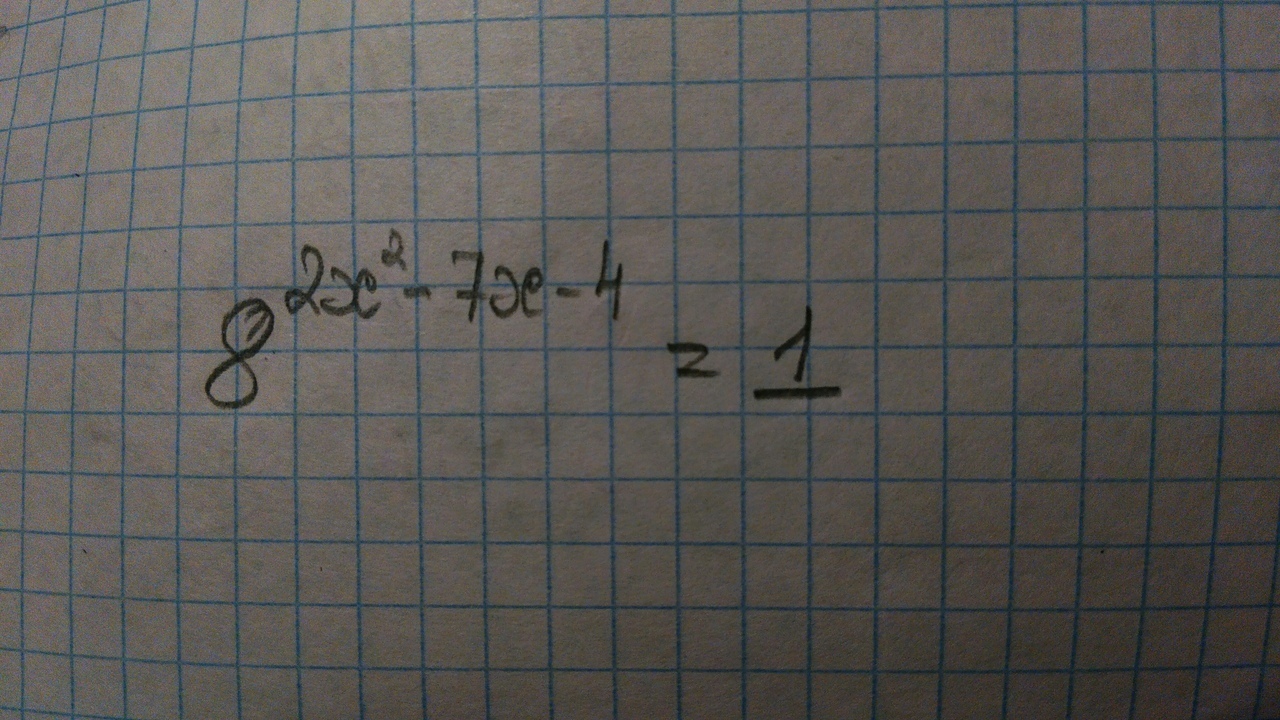 8^{2x^2-7x-4} = 1